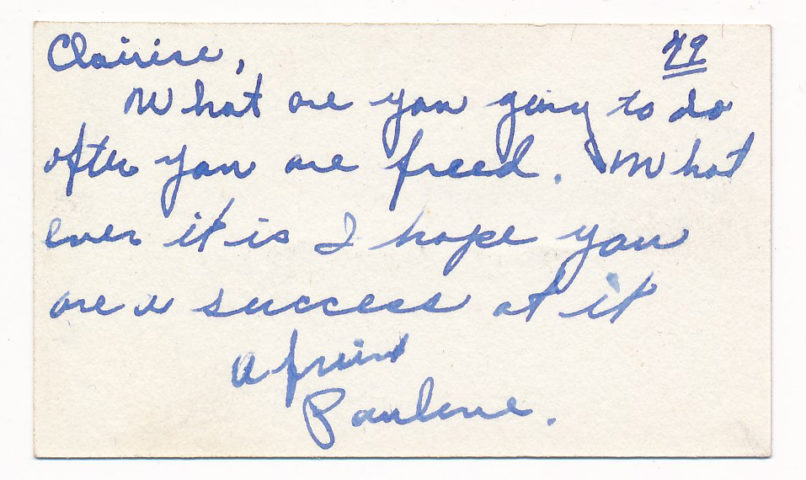 Clairise, 49
What are you going to do
after you are freed. What
ever it is I hope you
are a success at it
a friend
Paulene.